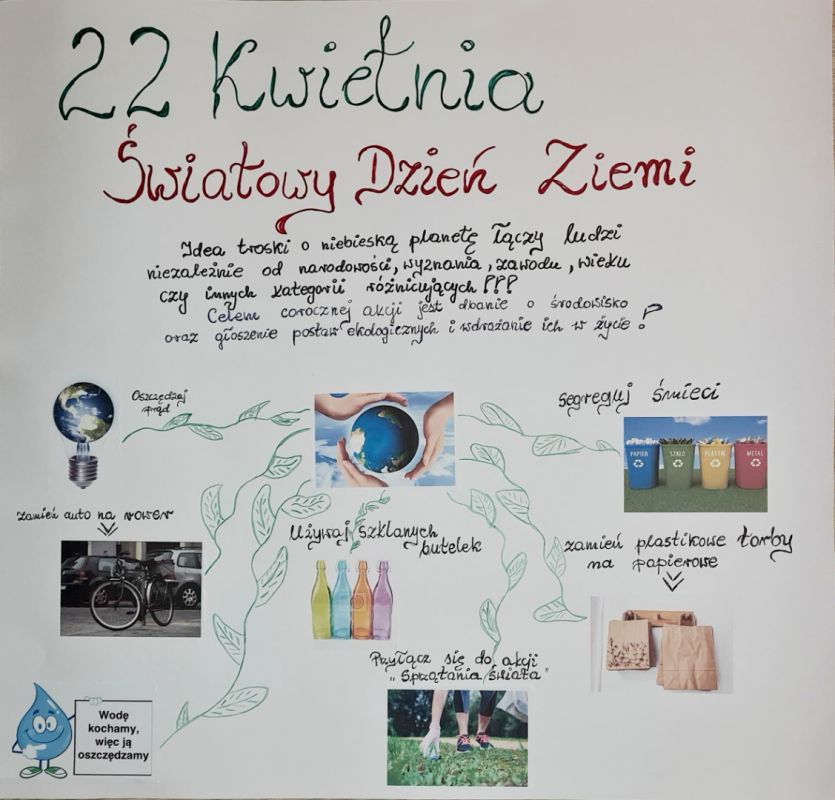 22 Kwietnia
Światowy Dzień Ziemi
Idea troski o niebieską planetę łączy ludzi
niezależnie od narodowości, wyznania, zawodu, wieku
czy innych kategorii różnicujących!!!
Celem corocznej akcji jest dbanie o środowisko
oraz głoszenie postaw ekologicznych i wdrażanie ich w życie!
Oszczędzaj
prąd
Segreguj śmieci
PAPIER SZKŁO PLASTIK METAL
zamień auto na rower
Używaj szklanych
butelek
zamień plastikowe torby
na papierowe
Przyłącz się do akcji
„Sprzątania świata"
Wodę
kochamy,
więc ją
oszczędzamy